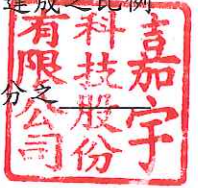 達成之比例
分之
嘉宇
科技股份
有限公司